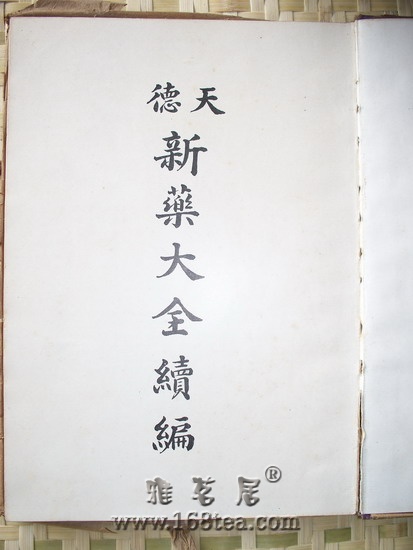 天德
新藥大全續編
雅茗居®
www.168tea.com